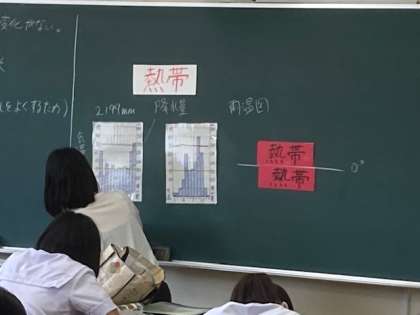 変化がない。
をよくするため)
熱帯
2199mm
降水量
雨温図
熱帯
熱帯
0°